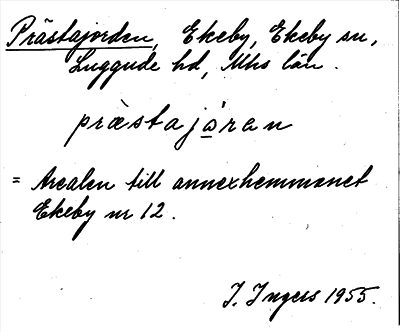 Prästajorden, Ekeby, Ekeby sn,
Luggude hd, Mhs län.
præstajo̲ran
= Arealen till annexhemmanet
Ekeby nr 12.
I. Ingers 1955.